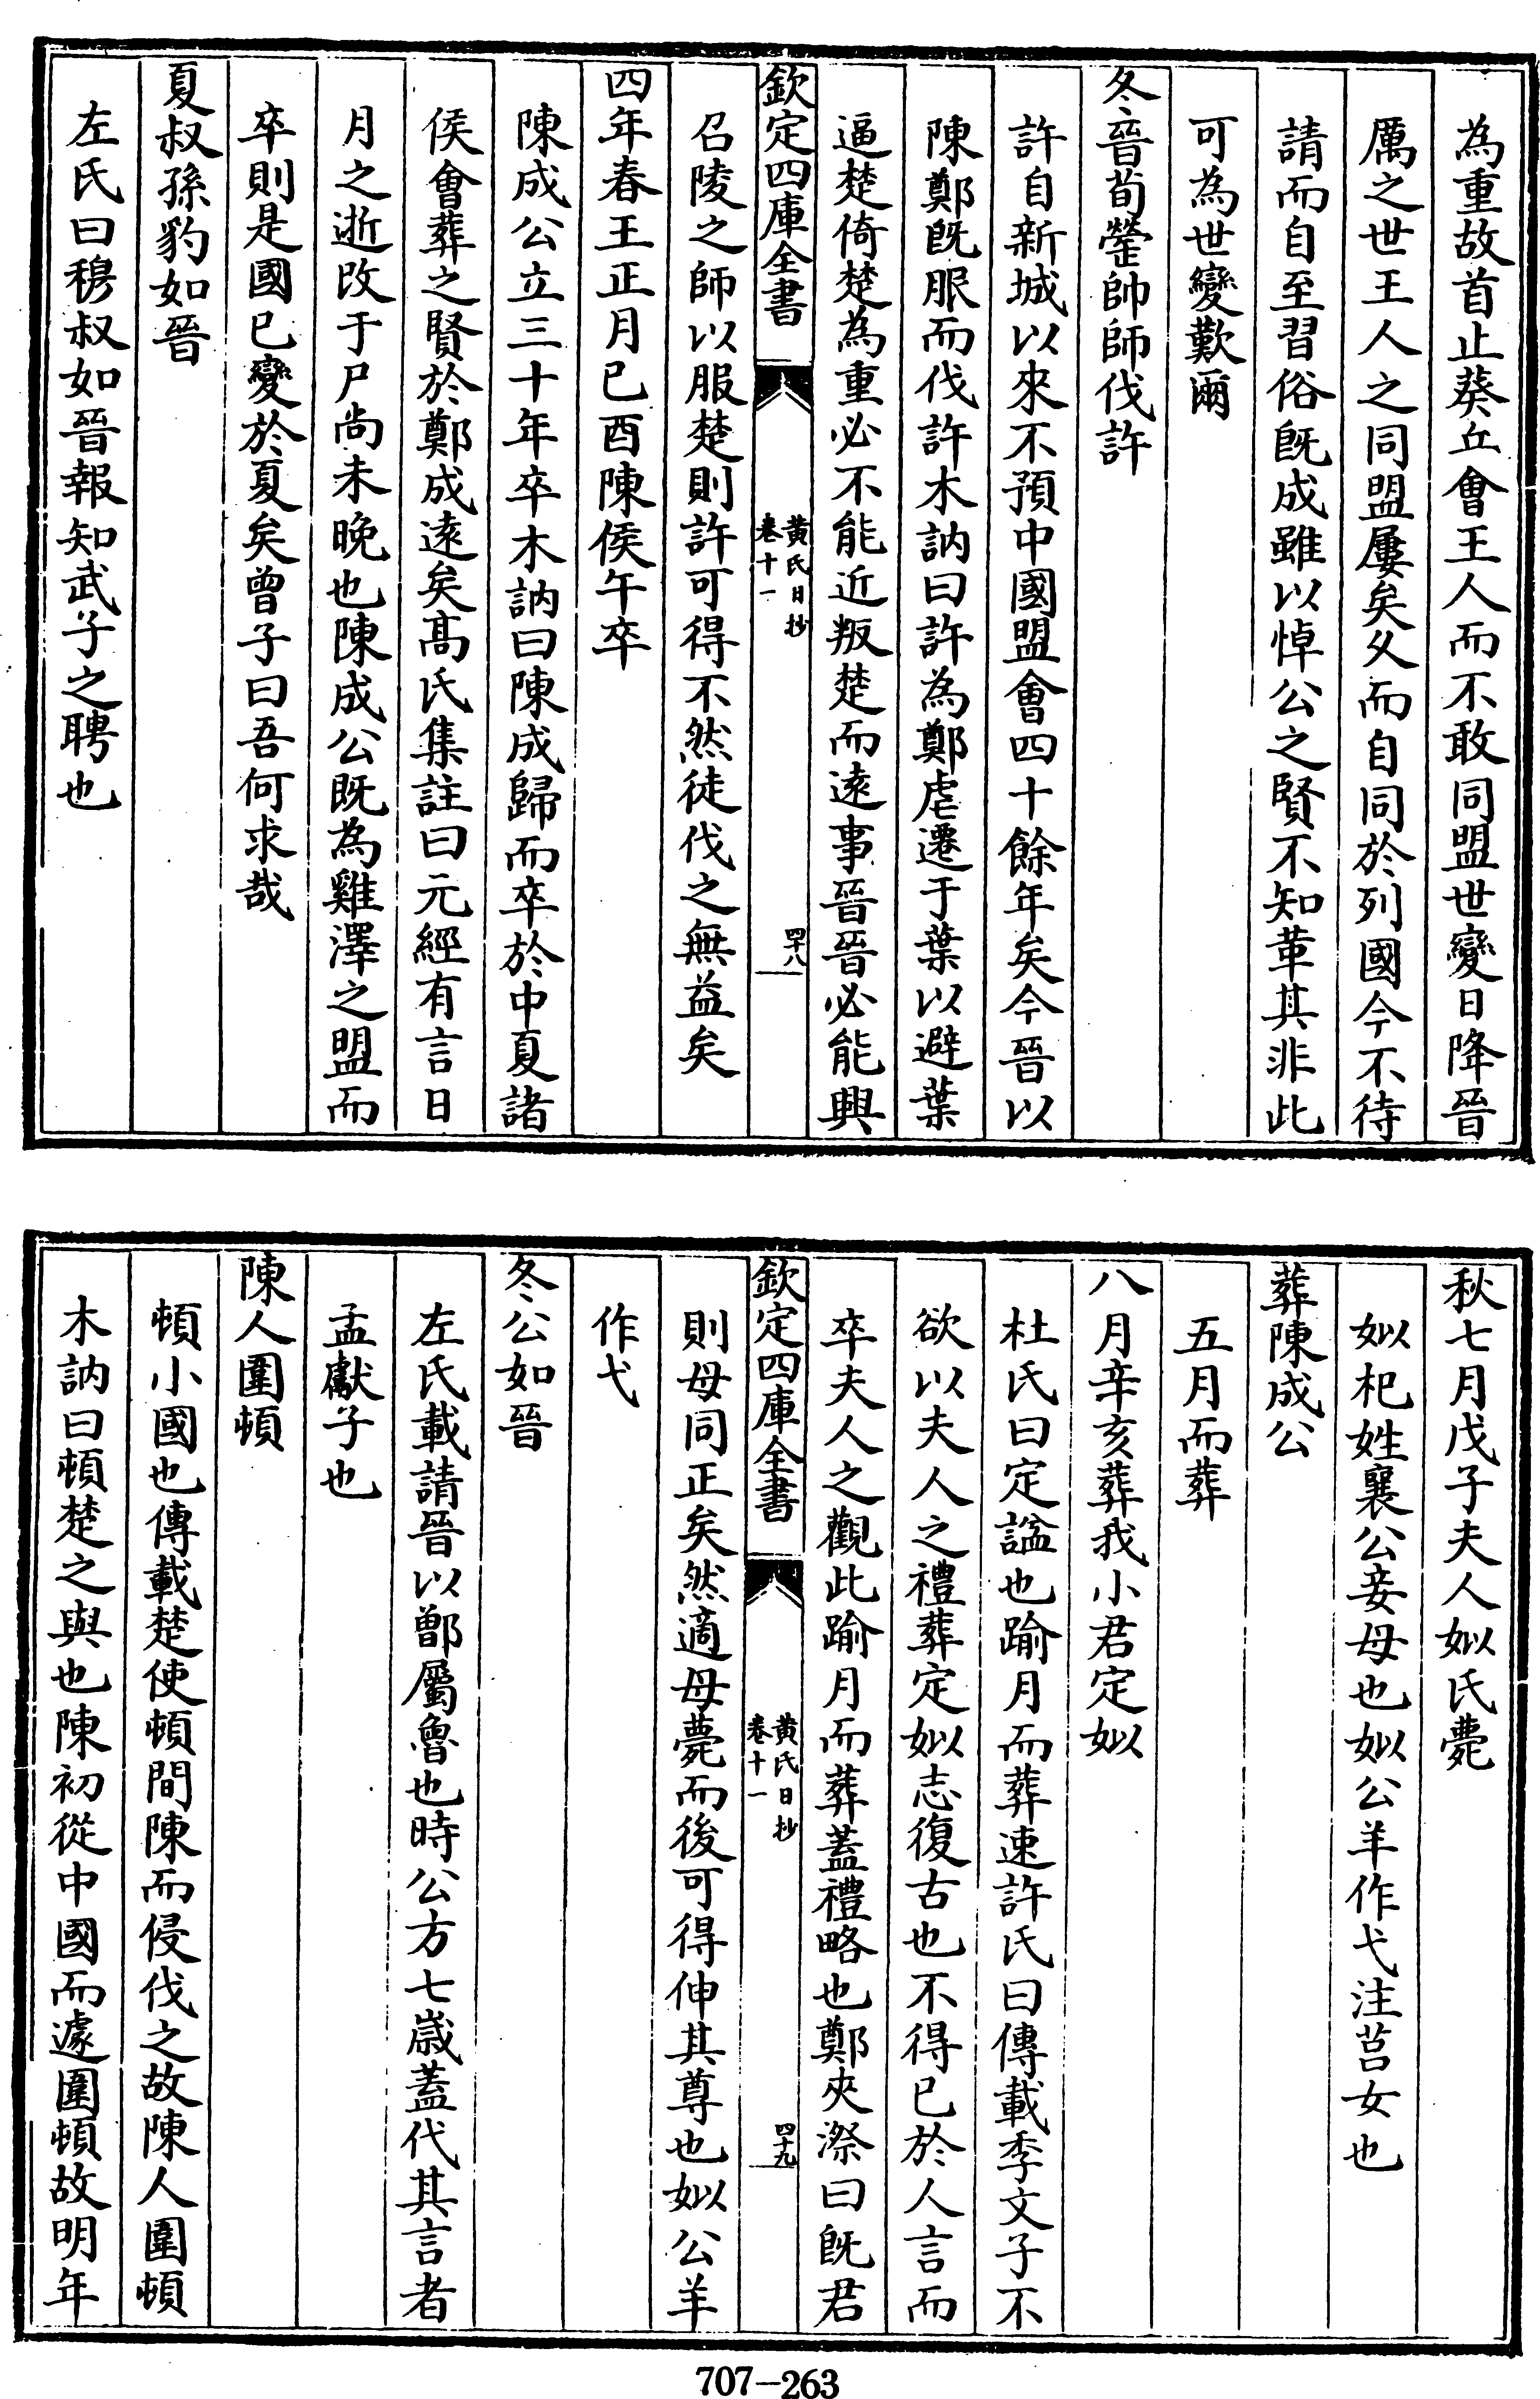 為重故首止葵丘會王人而不敢同盟世變日降晉
厲之世王人之同盟屢矣乆而自同於列國今不待
請而自至習俗既成雖以悼公之賢不知革其非此
可為世變歎爾
冬晉荀罃帥師伐許
許自新城以來不預中國盟會四十餘年矣今晉以
陳鄭既服而伐許木訥曰許為鄭虐遷于葉以避葉
逼楚倚楚為重必不能近叛楚而逺事晉晉必能興
欽定四庫全書
黃氏日抄
卷十一
四十八
召陵之師以服楚則許可得不然徒伐之無益矣
四年春王正月己酉陳侯午卒
陳成公立三十年卒木訥曰陳成歸而卒於中夏諸
侯會葬之賢於鄭成逺矣髙氏集註曰元經有言日
月之逝改于尸尚未晚也陳成公既為雞澤之盟而
卒則是國已變於夏矣曾子曰吾何求哉
夏叔孫豹如晉
左氏曰穆叔如晉報知武子之聘也
秋七月戊子夫人姒氏薨
姒杞姓襄公妾母也姒公羊作弋注莒女也
葬陳成公
五月而葬
八月辛亥葬我小君定姒
杜氏曰定諡也踰月而葬速許氏曰傳載季文子不
欲以夫人之禮葬定姒志復古也不得已於人言而
卒夫人之觀此踰月而葬蓋禮略也鄭夾漈曰既君
欽定四庫全書
黃氏日抄
卷十一
四十九
則母同正矣然適母薨而後可得伸其尊也姒公羊
作弋
冬公如晉
左氏載請晉以鄫屬魯也時公方七歳蓋代其言者
孟獻子也
陳人圍頓
頓小國也傳載楚使頓間陳而侵伐之故陳人圍頓
木訥曰頓楚之與也陳初從中國而遽圍頓故明年
707-263